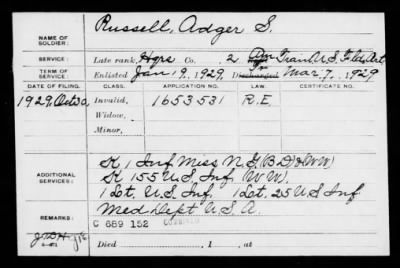 NAME OF SOLDIER: Russell, Adger S.
SERVICE: Late rank, Hqrs Co., 2 Am Train U.S. Fld. Art.
TERM OF SERVICE: Enlisted Jan 19, 1929, Discharged Mar. 7, 1929
DATE OF FILING. CLASS. APPLICATION NO. LAW. CERTIFICATE NO.
1929 Oct 30, Invalid, 1653531 R.E.
Widow,
Minor,
K 1 Inf Miss N.G. (B D & WW)
ADDITIONAL SERVICES: K 155 U.S. Inf (WW).
1 Lt. U.S. Inf. 1 Lt. 25 U.S. Inf
REMARKS: Med. Dept U.S.A.
C 689 152 COMBINED
Died , 1 , at